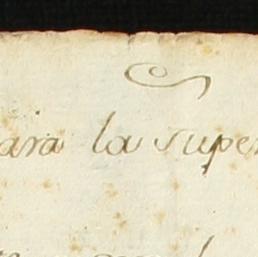 ara la super